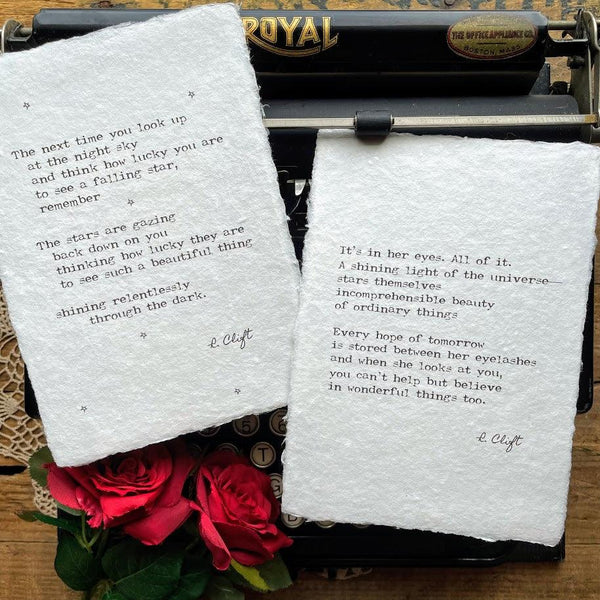 ROYAL
THE OFFICE APPLIANCE CO.
BOSTON MASS
The next time you look up
at the night sky
and think how lucky you are
to see a falling star,
remember
The stars are gazing
back down on you
thinking how lucky they are
to see such a beautiful thing
shining relentlessly
through the dark.
R. Clift
It's in her eyes. All of it.
A shining light of the universe—
stars themselves
incomprehensible beauty
of ordinary things
Every hope of tomorrow
is stored between her eyelashes
and when she looks at you,
you can't help but believe
in wonderful things too.
R. Clift
5 6
T